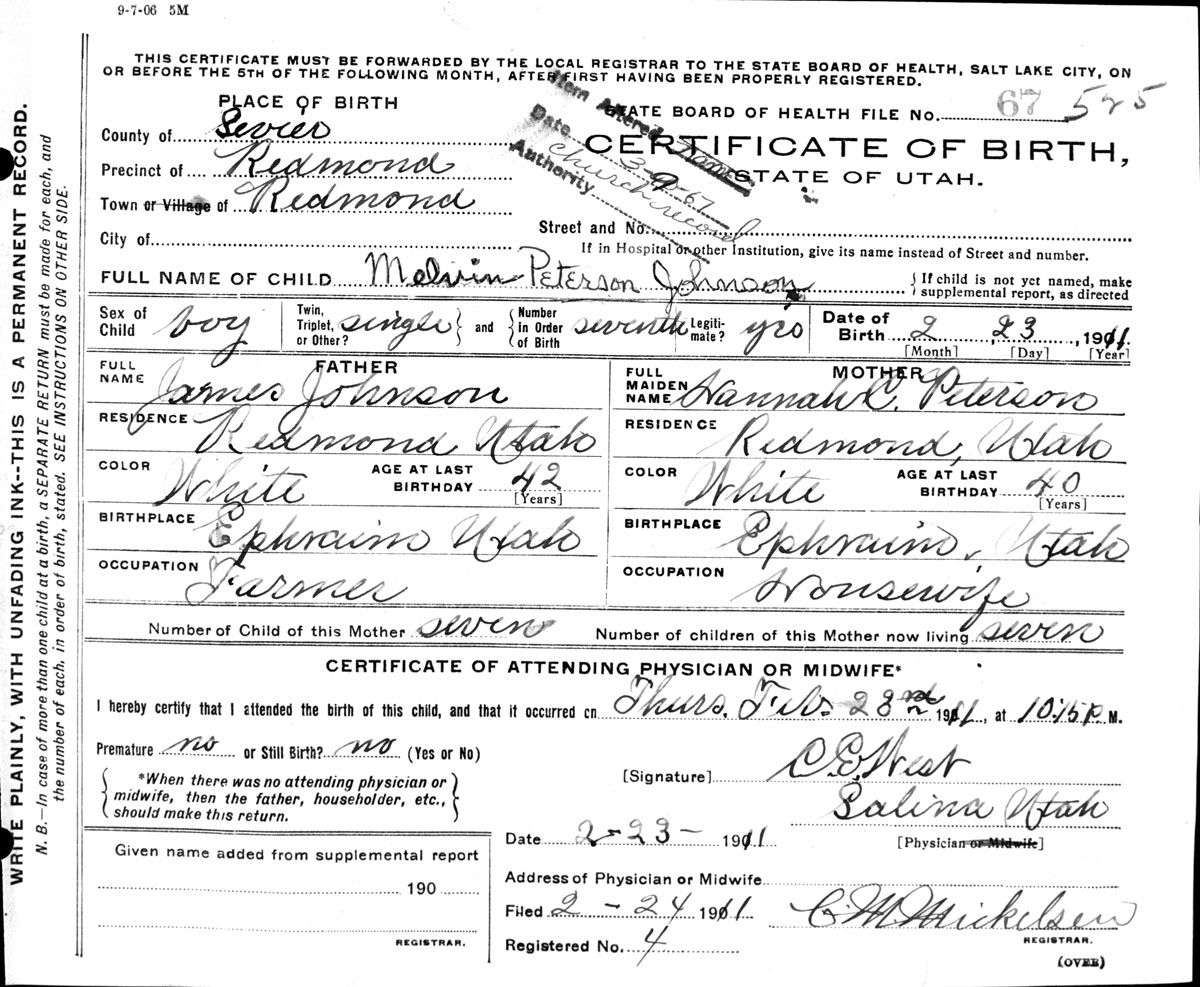 9-7-06 5M
THIS CERTIFICATE MUST BE FORWARDED BY THE LOCAL REGISTRAR TO THE STATE BOARD OF HEALTH, SALT LAKE CITY, ON
OR BEFORE THE 5TH OF THE FOLLOWING MONTH, AFTER FIRST HAVING BEEN PROPERLY REGISTERED.
WRITE PLAINLY, WITH UNFADING INK--THIS IS A PERMANENT RECORD.
N. B.—In case of more than one child at a birth, a SEPARATE RETURN must be made for each, and
the number of each, in order of birth, stated. SEE INSTRUCTIONS ON OTHER SIDE.
PLACE OF BIRTH
County of Sevier
Precinct of Redmond
Town or Village of Redmond
City of
Item Altered Name
Date 3- -67
Authority church record
STATE BOARD OF HEALTH FILE No. 67 525
CERTIFICATE OF BIRTH,
STATE OF UTAH.
Street and No.
If in Hospital or other Institution, give its name instead of Street and number.
FULL NAME OF CHILD Melvin Peterson Johnson { If child is not yet named, make
supplemental report, as directed
Sex of Child boy Twin, Triplet, or Other? single } and { Number in Order of Birth seventh Legiti-mate? yes Date of Birth 2 23, 1911.
[Month] [Day] [Year]
FATHER
FULL NAME James Johnson
RESIDENCE Redmond Utah
COLOR White AGE AT LAST BIRTHDAY 42
[Years]
BIRTHPLACE Ephraim Utah
OCCUPATION Farmer
MOTHER
FULL MAIDEN NAME Hannah C. Peterson
RESIDENCE Redmond, Utah
COLOR White AGE AT LAST BIRTHDAY 40
[Years]
BIRTHPLACE Ephraim, Utah
OCCUPATION Housewife
Number of Child of this Mother seven Number of children of this Mother now living seven
CERTIFICATE OF ATTENDING PHYSICIAN OR MIDWIFE*
I hereby certify that I attended the birth of this child, and that it occurred on Thurs. Feb. 23rd 1911, at 10:15 P. M.
Premature no or Still Birth? no (Yes or No)
{ *When there was no attending physician or
midwife, then the father, householder, etc.,
should make this return. }
[Signature] C. E. West
Salina Utah
[Physician or Midwife]
Date 2-23- 1911
Given name added from supplemental report
190
REGISTRAR.
Address of Physician or Midwife
Filed 2 - 24 1911 C. M. Mickelsen
REGISTRAR.
Registered No. 4
(OVER)